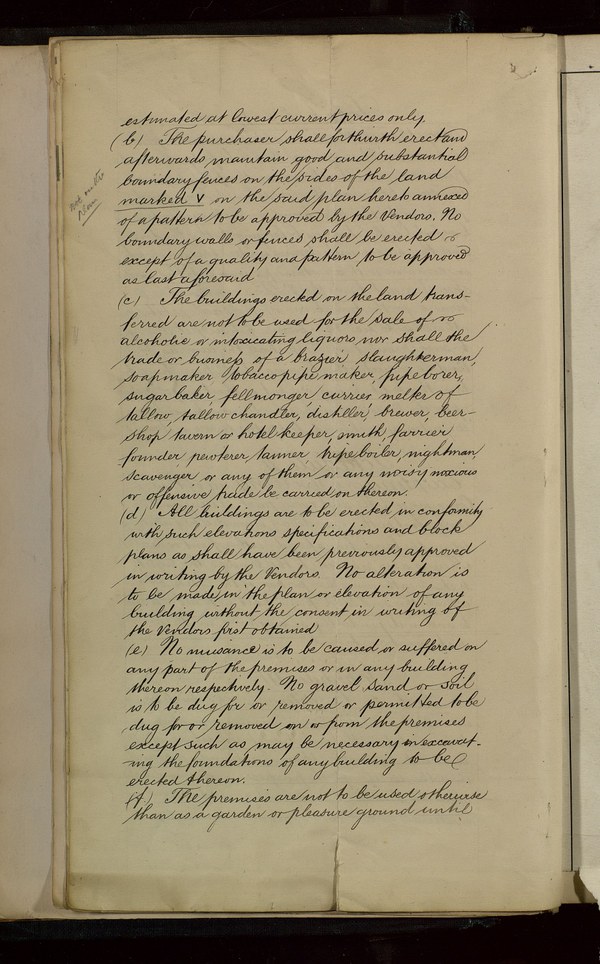 estimated at lowest current prices only.
(b) The purchaser shall forthwith erect and
afterwards maintain good and substantial
boundary fences on the sides of the land
marked V on the said plan hereto annexed
not on the
plan
of a pattern to be approved by the Vendors. No
boundary walls or fences shall be erected
except of a quality and pattern to be approved
as last aforesaid
(c) The buildings erected on the land trans-
ferred are not to be used for the sale of
alcoholic or intoxicating liquors nor shall the
trade or business of a brazier slaughterman,
soapmaker tobacco pipe maker, pipe borer,
sugar baker, fellmonger, currier, melter of
tallow, tallow chandler, distiller, brewer, beer-
shop tavern or hotel keeper, smith, farrier
founder, pewterer, tanner, tripe boiler, nightman,
scavenger or any of them or any noisy noxious
or offensive trade be carried on thereon.
(d) All buildings are to be erected in conformity
with such elevations specifications and block
plans as shall have been previously approved
in writing by the Vendors. No alteration is
to be made in the plan or elevation of any
building without the consent in writing of
the Vendors first obtained
(e) No nuisance is to be caused or suffered on
any part of the premises or in any building
thereon respectively. No gravel sand or soil
is to be dug for or removed or permitted to be
dug for or removed on or from the premises
except such as may be necessary in excavat-
-ing the foundations of any building to be
erected thereon.
(f) The premises are not to be used otherwise
than as a garden or pleasure ground until